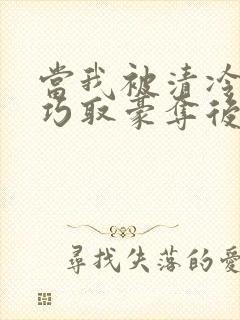 當我被清冷
巧取豪奪後
尋找失落的愛